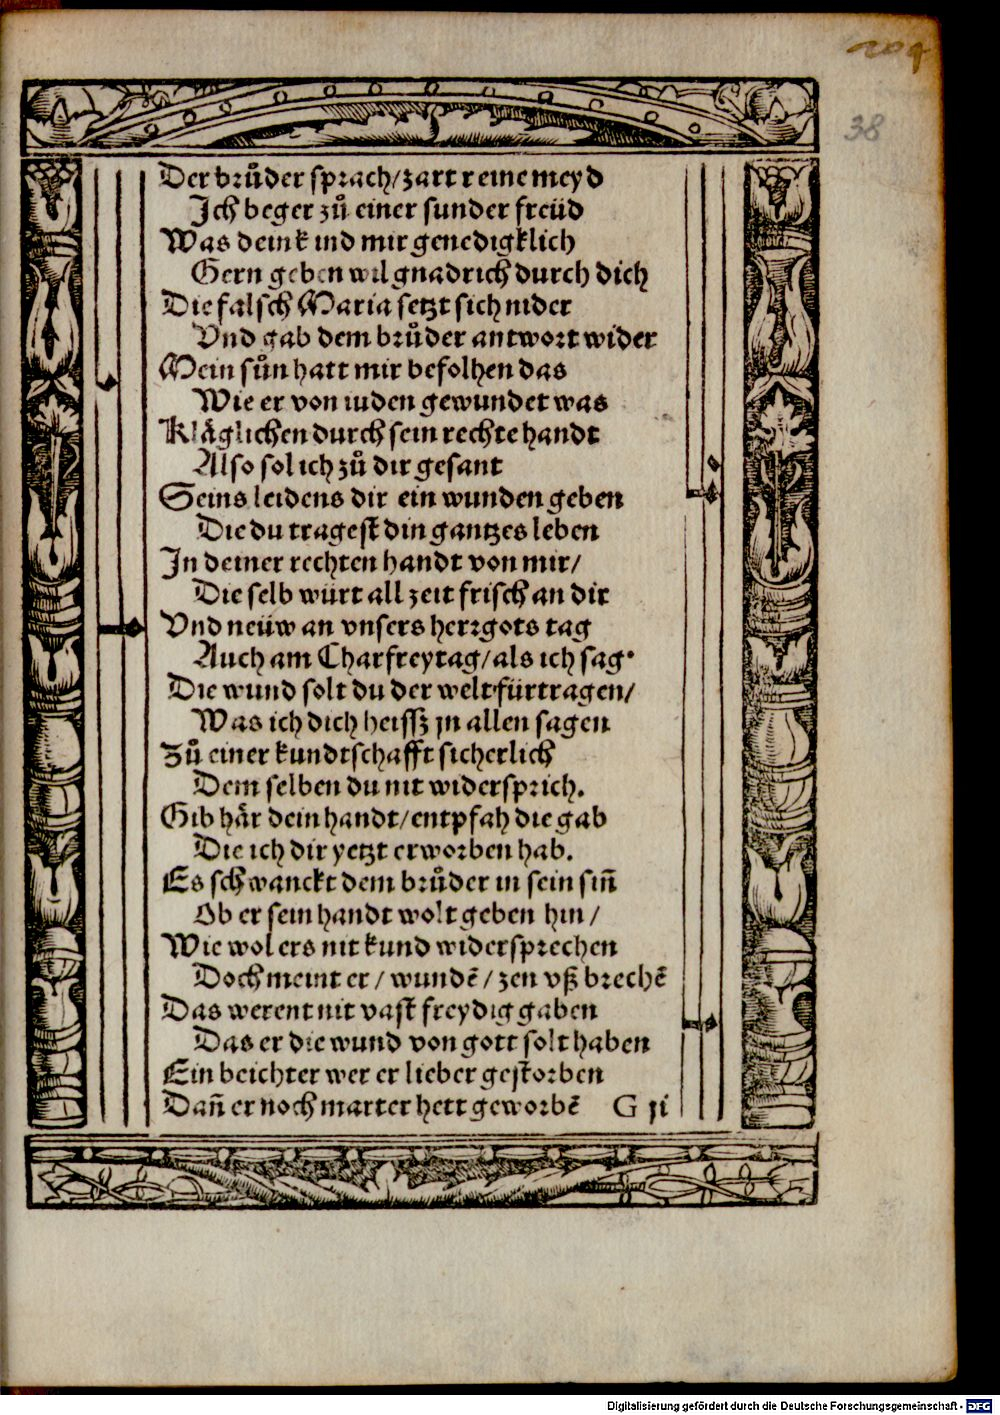 204
38
Der brůder sprach/zart reine meyd
Ich beger zů einer sunder freüd
Was dein kind mir genedigklich
Gern geben wil gnadrich durch dich
Die falsch Maria setzt sich nider
Vnd gab dem brůder antwort wider
Mein sůn hatt mir befolhen das
Wie er von iuden gewundet was
Kläglichen durch sein rechte handt
Also sol ich zů dir gesant
Seins leidens dir ein wunden geben
Die du tragest din gantzes leben
In deiner rechten handt von mir/
Die selb würt all zeit frisch an dir
Vnd neüw an vnsers herrgots tag
Auch am Charfreytag/als ich sag·
Die wund solt du der welt fürtragen/
Was ich dich heissz jn allen sagen
Zů einer kundtschafft sicherlich
Dem selben du nit widersprich.
Gib här dein handt/entpfah die gab
Die ich dir yetzt erworben hab.
Es schwanckt dem brůder in sein siñ
Ob er sein handt wolt geben hin/
Wie wol ers nit kund widersprechen
Doch meint er/wundẽ/zen vß brechẽ
Das werent nit vast freydig gaben
Das er die wund von gott solt haben
Ein beichter wer er lieber gestorben
Dañ er noch marter hett geworbẽ G ji
Digitalisierung gefördert durch die Deutsche Forschungsgemeinschaft - DFG